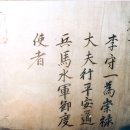 李守一為崇祿
大夫行平安道
兵馬水軍節度
使者